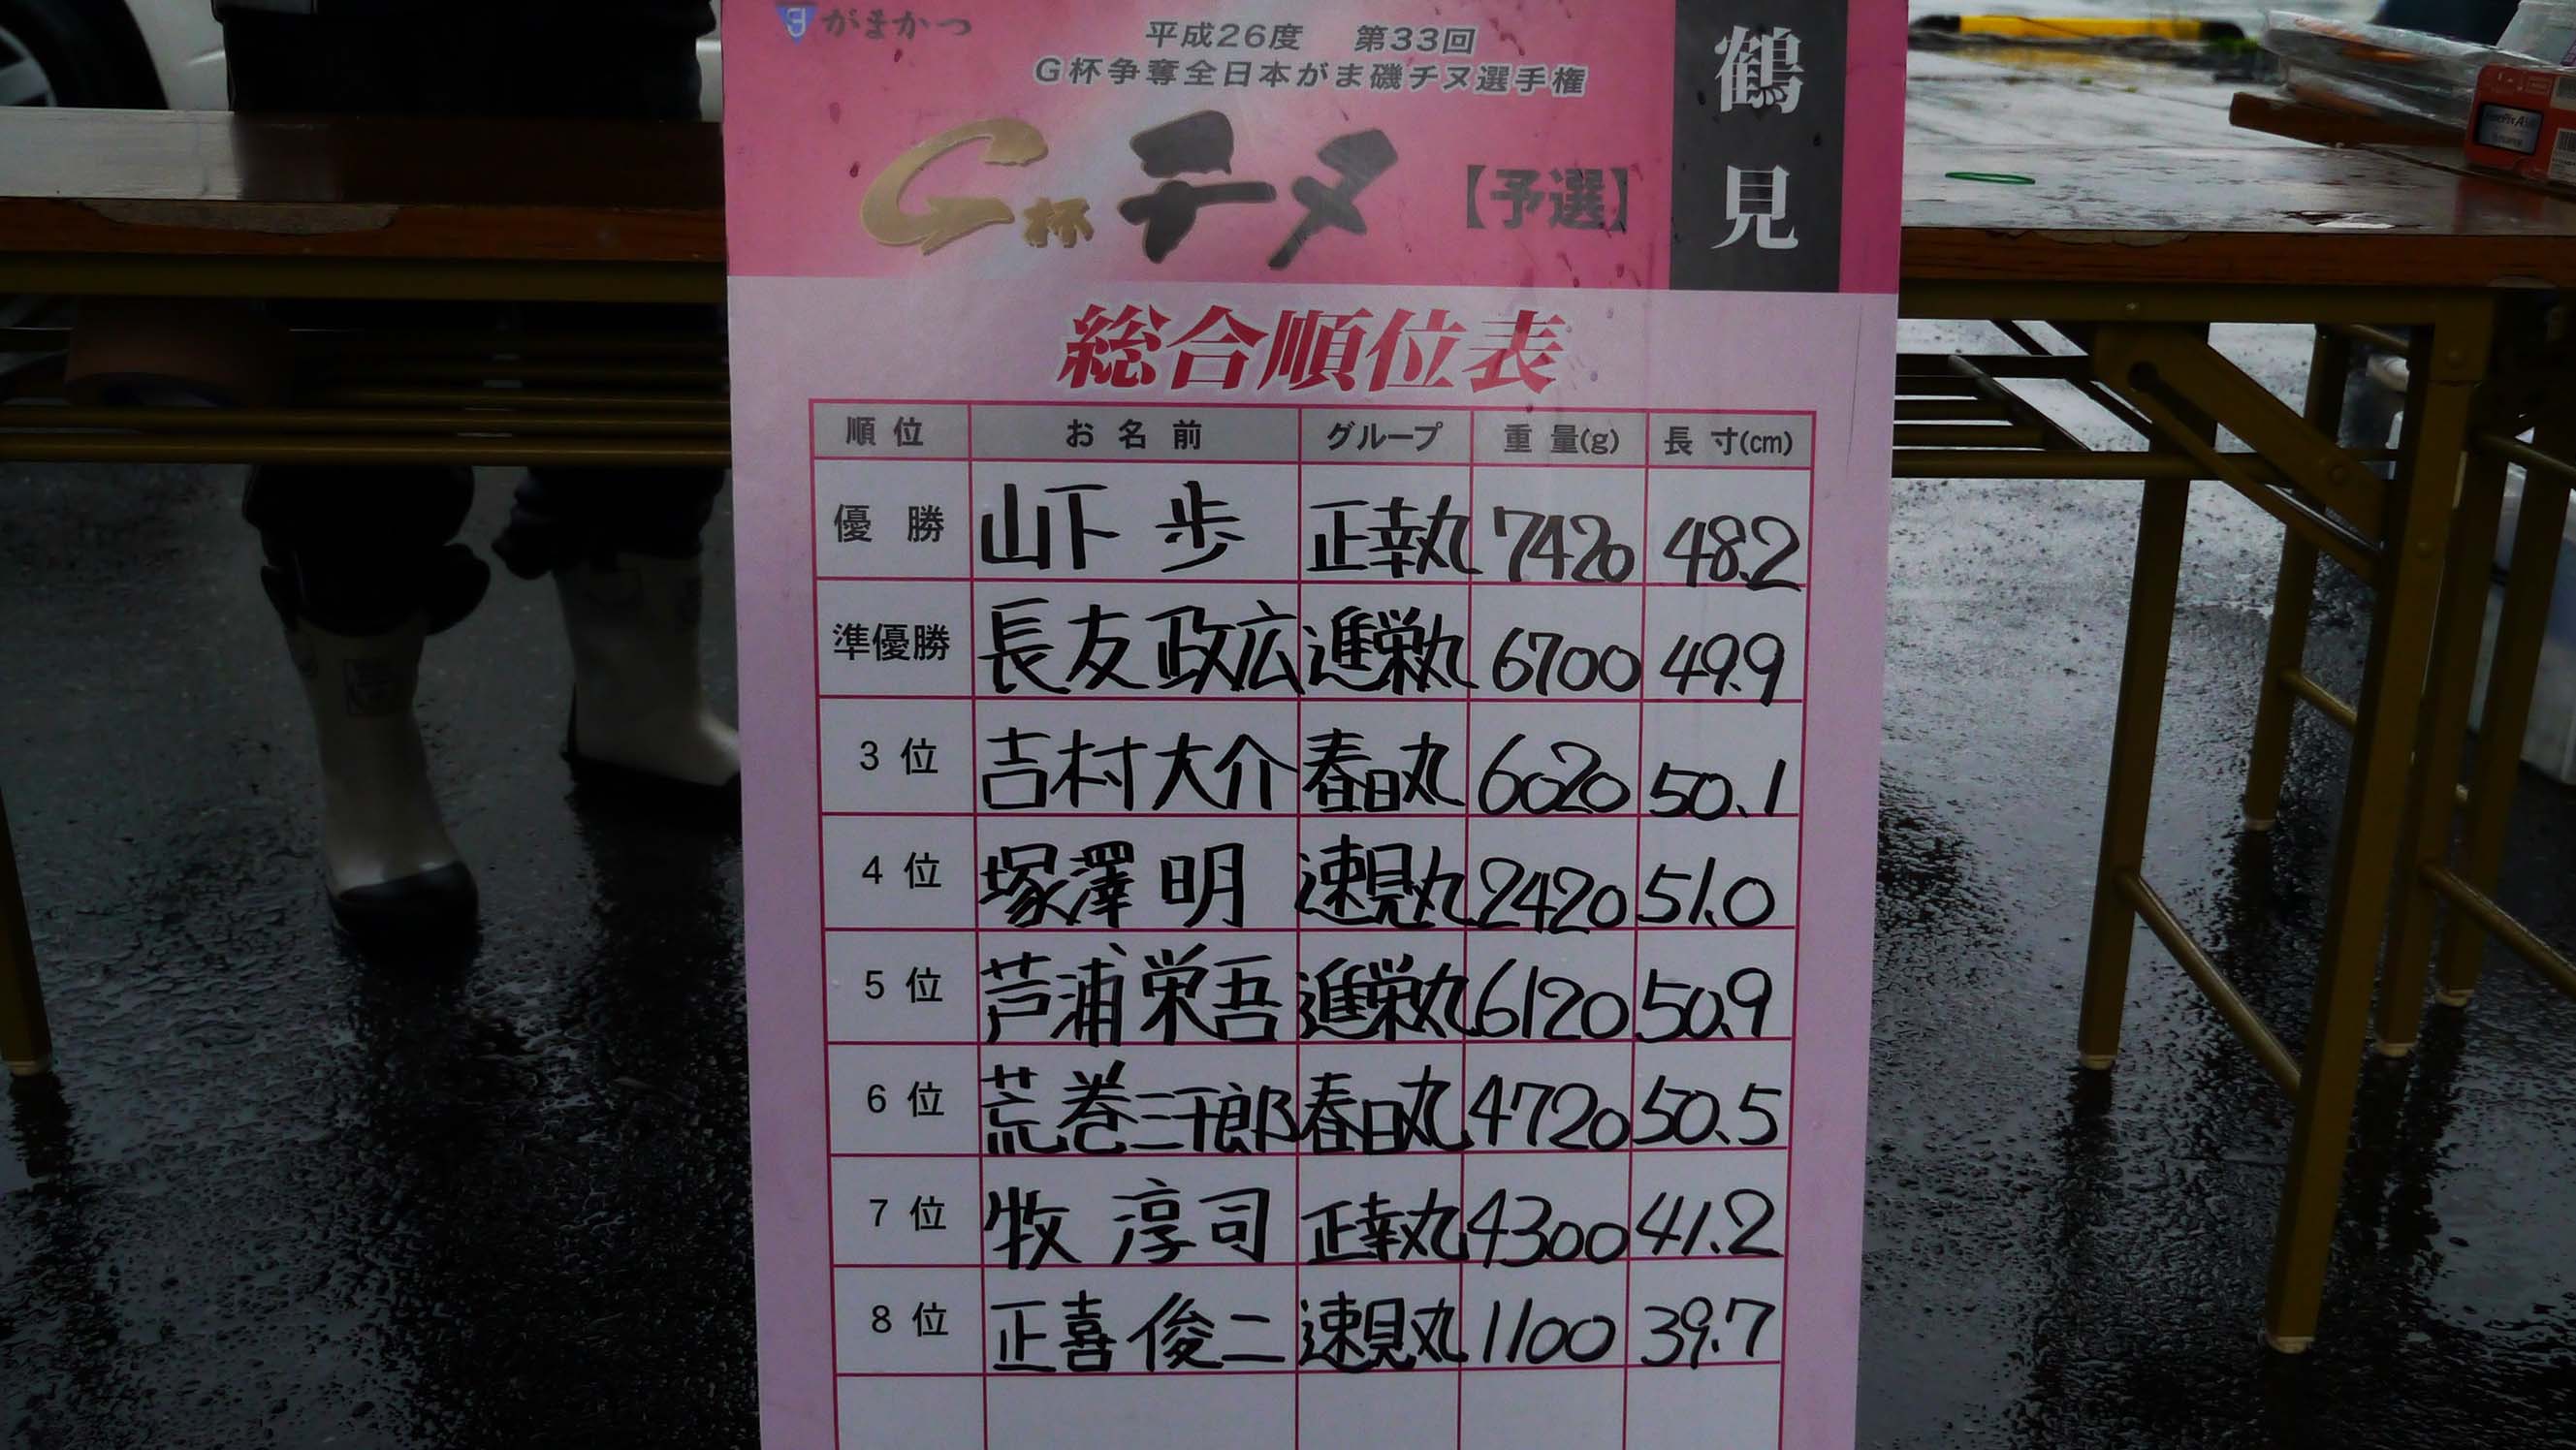 がまかつ
平成26度 第33回
G杯争奪全日本がま磯チヌ選手権
G杯チヌ【予選】
鶴見
総合順位表
順位 お名前 グループ 重量(g) 長寸(cm)
優勝 山下 歩 正幸丸 7420 48.2
準優勝 長友政広 進栄丸 6700 49.9
3位 吉村大介 春日丸 6020 50.1
4位 塚澤明 速見丸 2420 51.0
5位 芦浦栄吾 進栄丸 6120 50.9
6位 荒巻三千郎 春日丸 4720 50.5
7位 牧 淳司 正幸丸 4300 41.2
8位 正喜俊二 速見丸 1100 39.7